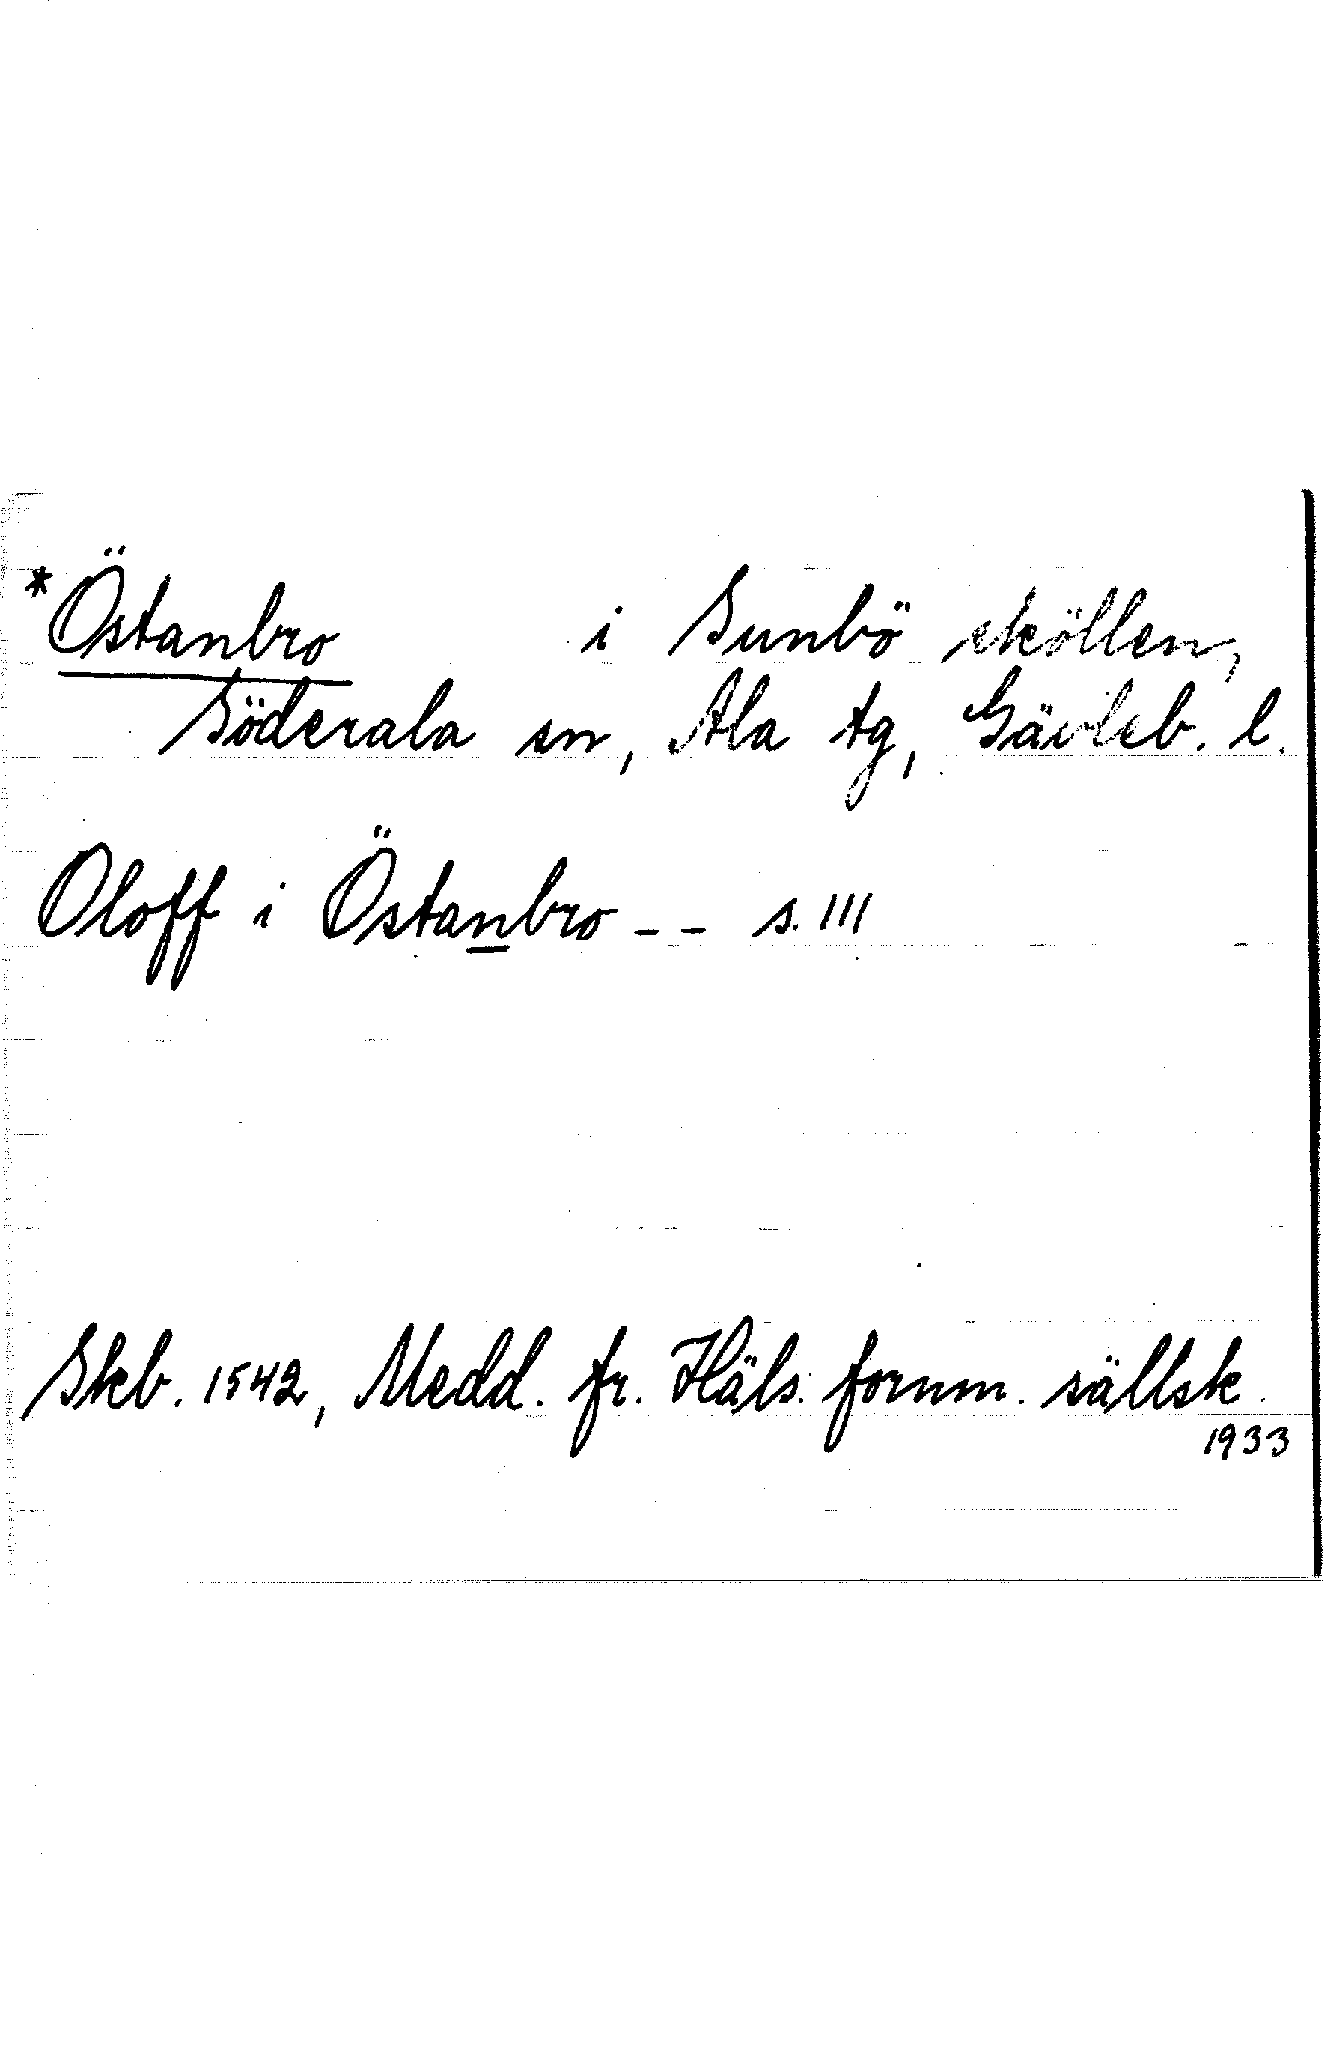 *Östanbro i Sunbö sköllen,
Söderala sn, Ala tg, Gävleb. l.
Oloff i Östanbro -- s. 111
Skb. 1542, Medd. fr. Häls. fornm. sällsk.
1933